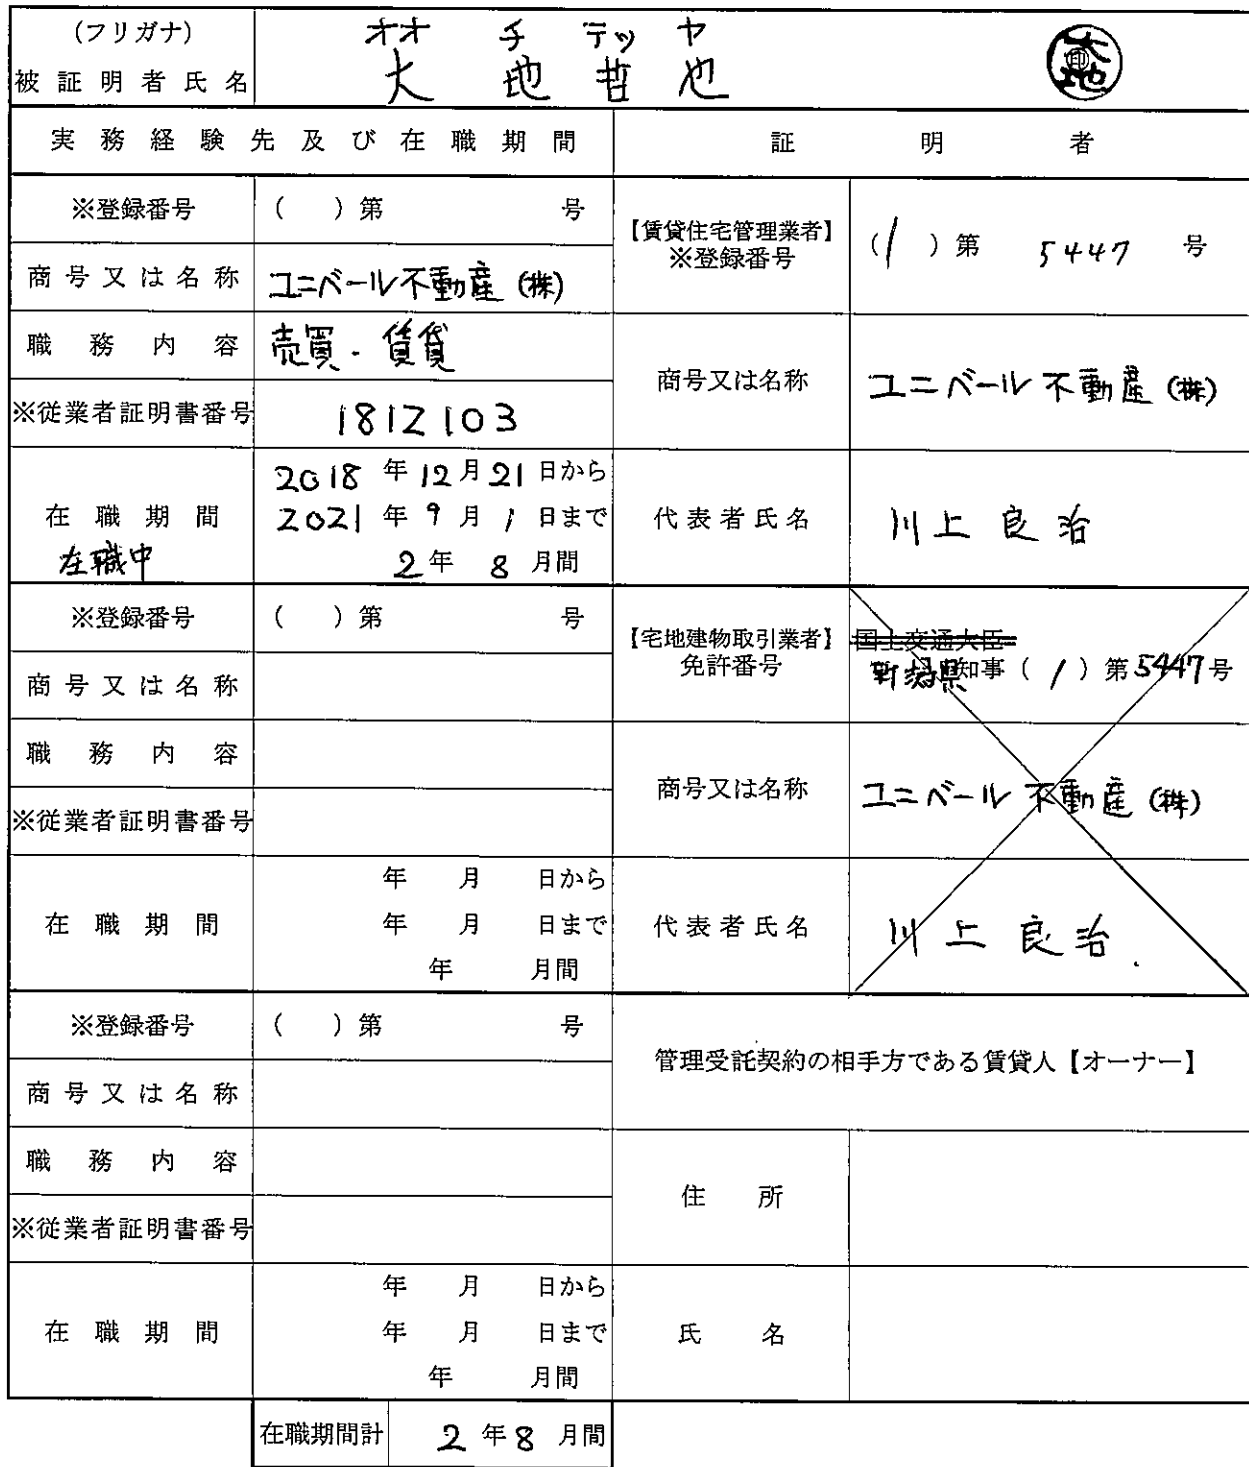 (フリガナ) オオ チ テツ ヤ
被証明者氏名 大地哲也 大地 印
実務経験先及び在職期間 証明者
※登録番号 ( )第 号
【賃貸住宅管理業者】
※登録番号 (1)第 5447 号
商号又は名称 ユニベール不動産(株)
職務内容 売買・賃貸
商号又は名称 ユニベール不動産(株)
※従業者証明書番号 1812103
在職期間
在職中
2018年12月21日から
2021年9月1日まで
2年8月間
代表者氏名 川上良治
※登録番号 ( )第 号
【宅地建物取引業者】
免許番号
国土交通大臣
新潟県知事(1)第5447号
商号又は名称
職務内容
商号又は名称 ユニベール不動産(株)
※従業者証明書番号
在職期間
年 月 日から
年 月 日まで
年 月間
代表者氏名 川上良治.
※登録番号 ( )第 号
管理受託契約の相手方である賃貸人【オーナー】
商号又は名称
職務内容
住所
※従業者証明書番号
在職期間
年 月 日から
年 月 日まで
年 月間
氏名
在職期間計 2年8月間